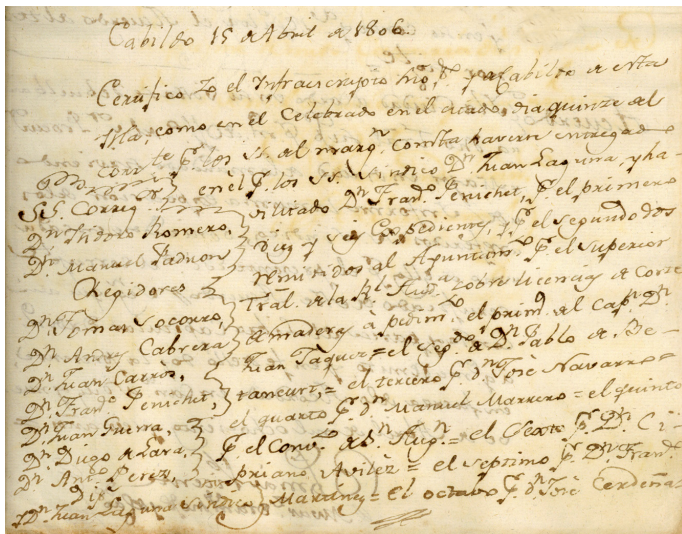 Cabildo 15 de Abril de 1806.
Certifico Yo el Infraescripto de Cabildo de esta
Isla, como en el Celebrado en el citado dia quinze del
corr.te los del marg.n consta haverse entregado
en el los Sindico Dn. Juan Laguna, y ha-
vilitado Dn. Fran.co Penichet, el primero
diez y seis Expedientes, el segundo dos
remitidos al Ayuntam.to el Superior
Tral. de la Rl. Aud. sobre licencias de Corte
de maderas à pedim.to el prim.o del Cap.n Dn.
Juan Jaques = el seg.do de Dn. Pablo de Be-
tancurt, = el tercero Dn. José Navarro =
el quarto Dn. Manuel Marrero = el quinto
el Conv.to de Sn. Aug.n = el Sexto Dn. Ci-
priano Avilez = el septimo Dn. Fran.co
Martinez = El octavo Dn. José Cerdeña
SS. Correg.
Dn. Isidoro Romero,
Dn. Manuel Padron
Regidores
Dn. Tomas Socorro,
Dn. Andres Cabrera
Dn. Juan Carros,
Dn. Fran.co Penichet,
Dn. Juan Guerra,
Dn. Diego de Lara,
Dn. Ant.o Perez,
Dip.
Dn. Juan Laguna Sindico